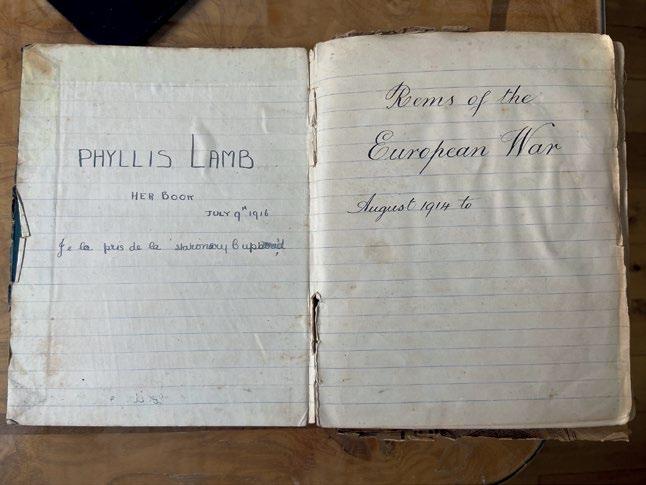 PHYLLIS LAMB
HER BOOK
JULY 9th 1916
Je la pris de la stationery Cupboard
Rems of the
European War
August 1914 to